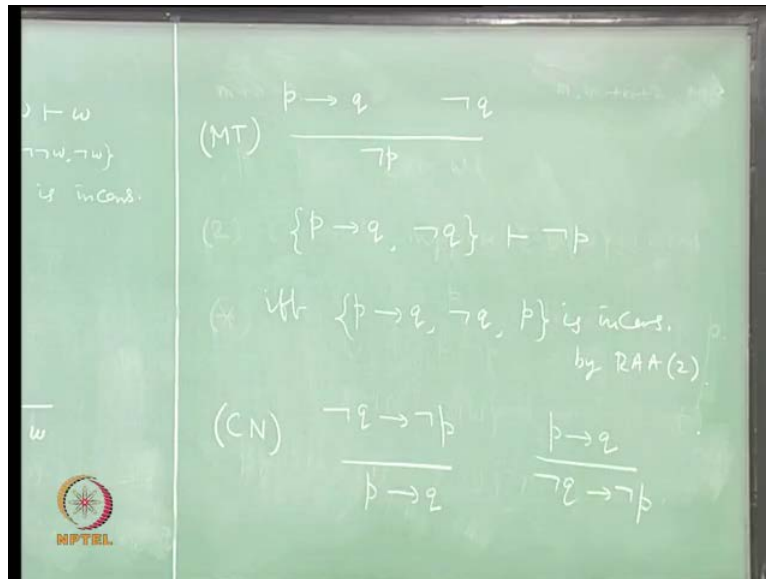 ⊢ w
¬¬w, ¬w}
is incons.
w
p → q    ¬q
(MT)
¬p
{p → q, ¬q} ⊢ ¬p
iff {p → q, ¬q, p} is incons.
by RAA(2).
(CN)  ¬q → ¬p    p → q
p → q    ¬q → ¬p
NPTEL